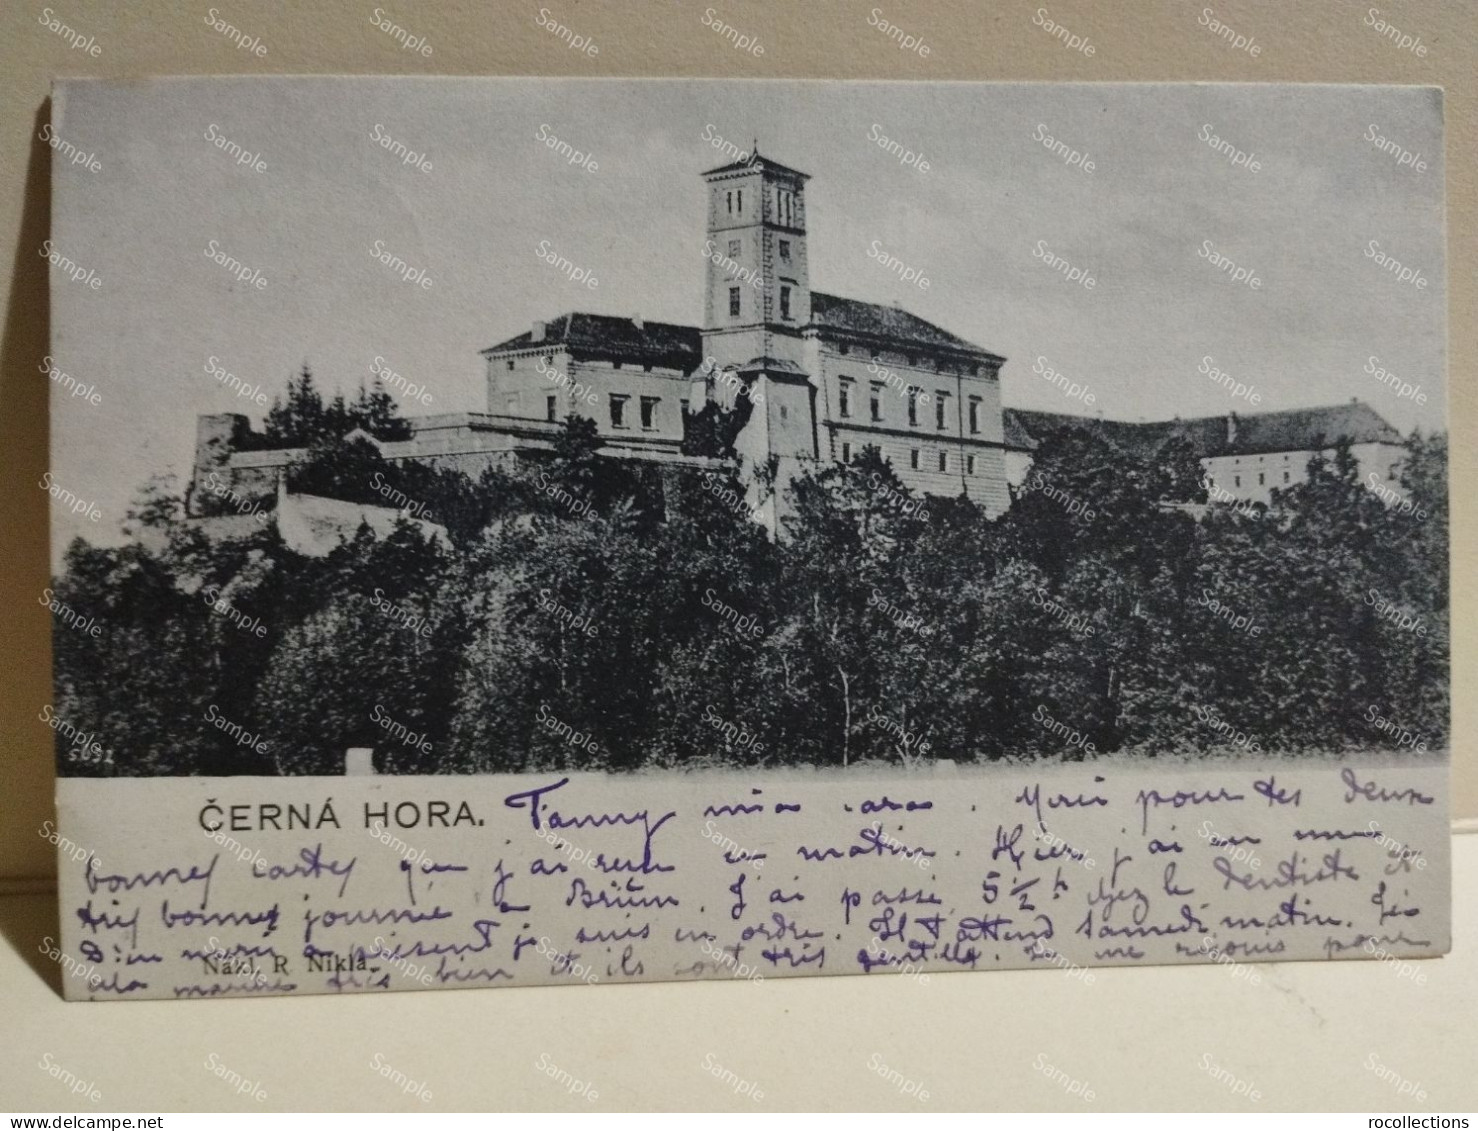 5632
ČERNÁ HORA. Fanny mia cara. Merci pour tes deux
bonnes cartes que j'ai reçu ce matin. Hier j'ai eu une
très bonnes journé a Brünn. J'ai passé 5 1/2 h chez le dentiste et
Dieu merci a present je suis en ordre. Il t'attend Samedi matin.
Nákl. R. Nikla.
très bien et ils sont très gentils. Je me rejouis pour
rocollections